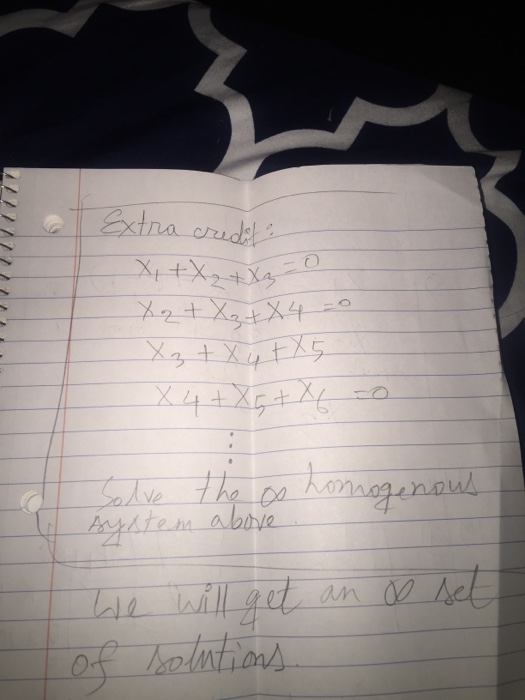 Extra credit:
X1 + X2 + X3 = 0
X2 + X3 + X4 = 0
X3 + X4 + X5
X4 + X5 + X6 = 0
⋮
Solve the ∞ homogenous
system above.
We will get an ∞ set
of solutions.